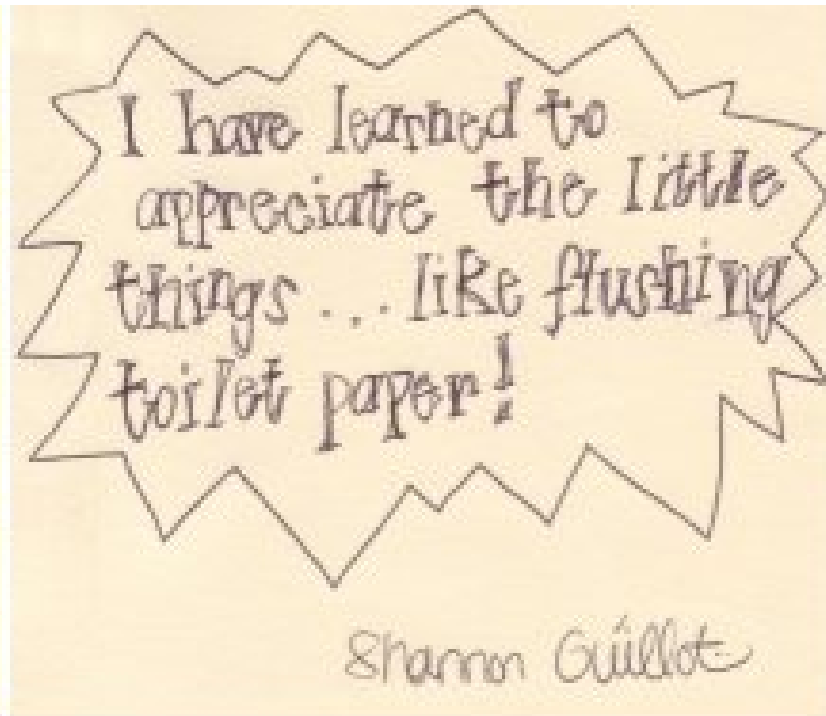 I have learned to
appreciate the little
things... like flushing
toilet paper!
Shannon Guillot